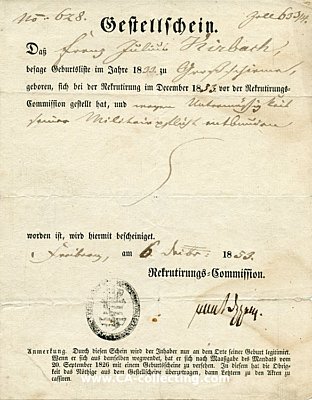 No: 628.
Gestellschein.
Daß Franz Julius Kirbach,
besage Geburtsliste im Jahre 1833. zu Großschirma,
geboren, sich bei der Rekrutirung im December 1853 vor der Rekrutirungs-
Commission gestellt hat, und wegen Untermäßigkeit
seiner Militairpflicht entbunden
worden ist, wird hiermit bescheiniget.
Freiberg, am 6. Decbr. 1853.
Rekrutirungs-Commission.
Anmerkung. Durch diesen Schein wird der Inhaber nur an dem Orte seiner Geburt legitimirt.
Wenn er sich aus demselben wegwendet, hat er sich nach Maaßgabe des Mandats vom
20. September 1826 mit einem Gestellscheine zu versehen. In diesem hat die Obrig-
keit das Nöthige aus den Gestellscheine überzutragen, dann letztern zu den Akten zu
cassiren.
www.CA-collecting.com